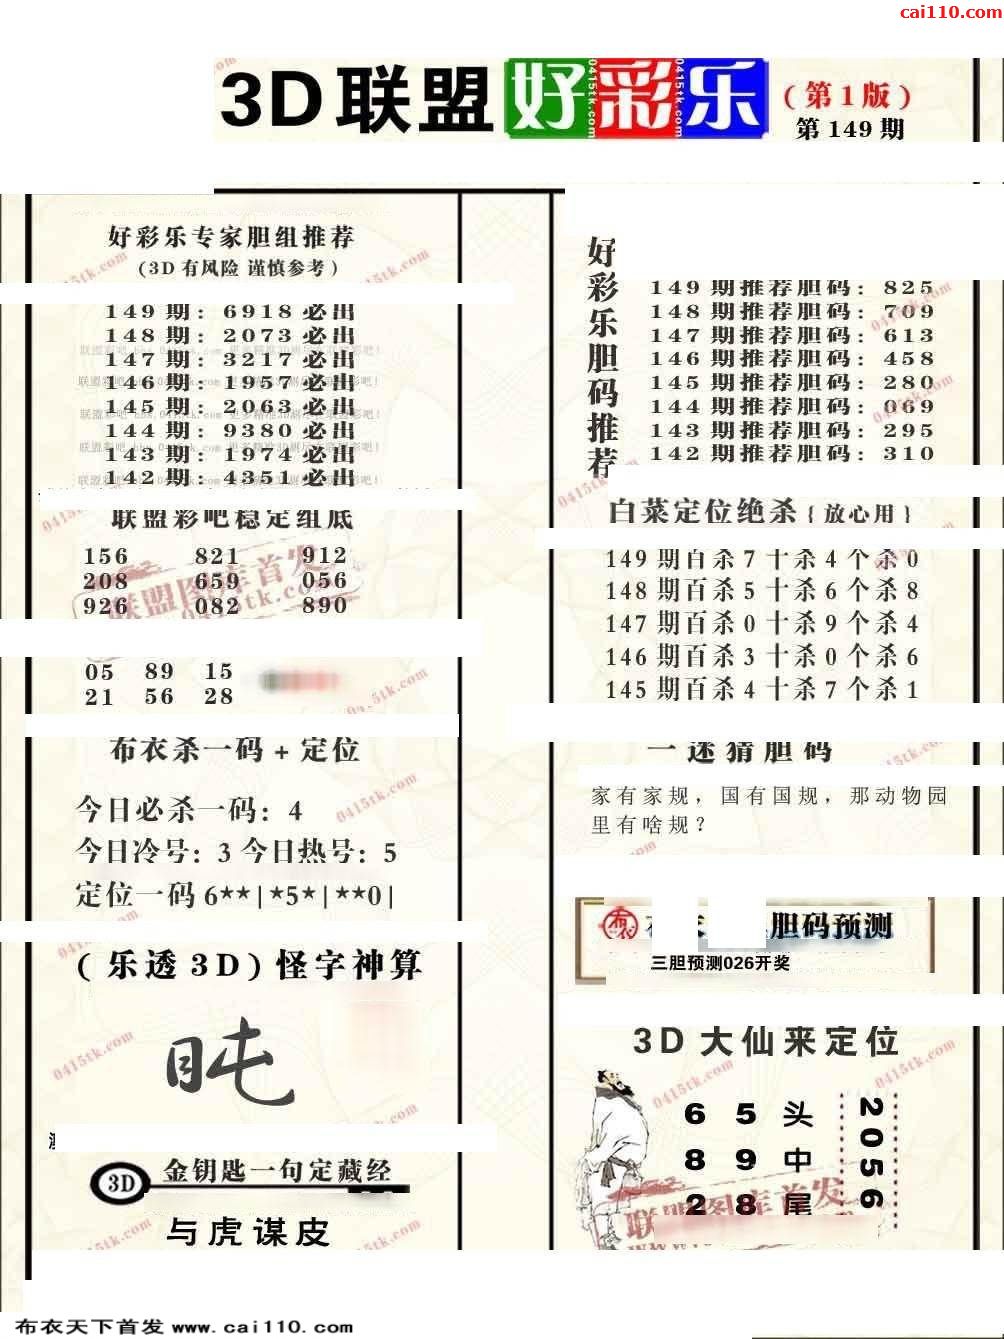 cai110.com
3D联盟好彩乐（第1版）
第149期
好彩乐专家胆组推荐
（3D有风险 谨慎参考）
149期：6918必出
148期：2073必出
147期：3217必出
146期：1957必出
145期：2063必出
144期：9380必出
143期：1974必出
142期：4351必出
联盟彩吧稳定组底
156 821 912
208 659 056
926 082 890
05 89 15
21 56 28
布衣杀一码+定位
今日必杀一码：4
今日冷号：3 今日热号：5
定位一码6**|*5*|**0|
（乐透3D）怪字神算
3D 金钥匙一句定藏经
与虎谋皮
好彩乐胆码推荐
149期推荐胆码：825
148期推荐胆码：709
147期推荐胆码：613
146期推荐胆码：458
145期推荐胆码：280
144期推荐胆码：069
143期推荐胆码：295
142期推荐胆码：310
白菜定位绝杀{放心用}
149期百杀7十杀4个杀0
148期百杀5十杀6个杀8
147期百杀0十杀9个杀4
146期百杀3十杀0个杀6
145期百杀4十杀7个杀1
一迷猜胆码
家有家规，国有国规，那动物园
里有啥规？
布衣 胆码预测
三胆预测026开奖
3D大仙来定位
6 5 头
8 9 中
2 8 尾
2056
联盟图库首发
0415tk.com
布衣天下首发 www.cai110.com